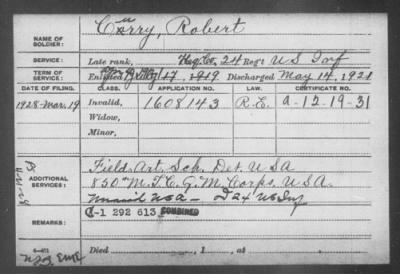 NAME OF SOLDIER: Curry, Robert
SERVICE: Late rank, Hdq. Co, 24 Reg't U S Inf
TERM OF SERVICE: Enlisted 17, 1919 Discharged May 14, 1921
DATE OF FILING. CLASS. APPLICATION NO. LAW. CERTIFICATE NO.
1928-Mar, 19 Invalid, 1608143 R.E. a-12-19-31
Widow,
Minor,
ADDITIONAL SERVICES: Field. Art. Sch. Det. U S A
850" M. T. C. G. M. Corps. U.S.A.
Unassi'd U S A - 24 US Inf
REMARKS: C-1 292 613 COMBINED
Died , 1 , at